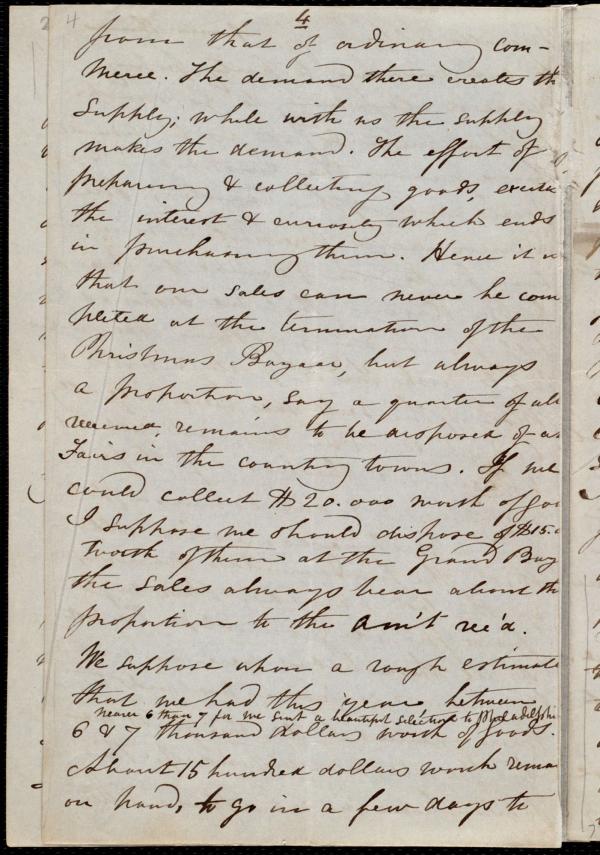 4
4
from that of ordinary com-
merce. The demand there creates th
Supply; while with us the supply
makes the demand. The effort of
preparing & collecting goods, excite
the interest & curiosity which ends
in purchasing them. Hence it
that our sales can never be com
pleted at the termination of the
Christmas Bazaar, but always
a proportion, say a quarter of all
received, remains to be disposed of at
Fairs in the country towns. If we
could collect $20.000 worth of goo
I suppose we should dispose of $15.
worth of them at the Grand Baz
the sales always bear about th
proportion to the am't rec'd.
We suppose upon a rough estimate
that we had this year between
nearer 6 than 7 for we sent a beautiful selection to Philadelphi
6 & 7 thousand dollars worth of goods.
About 15 hundred dollars worth rema
on hand, to go in a few days to